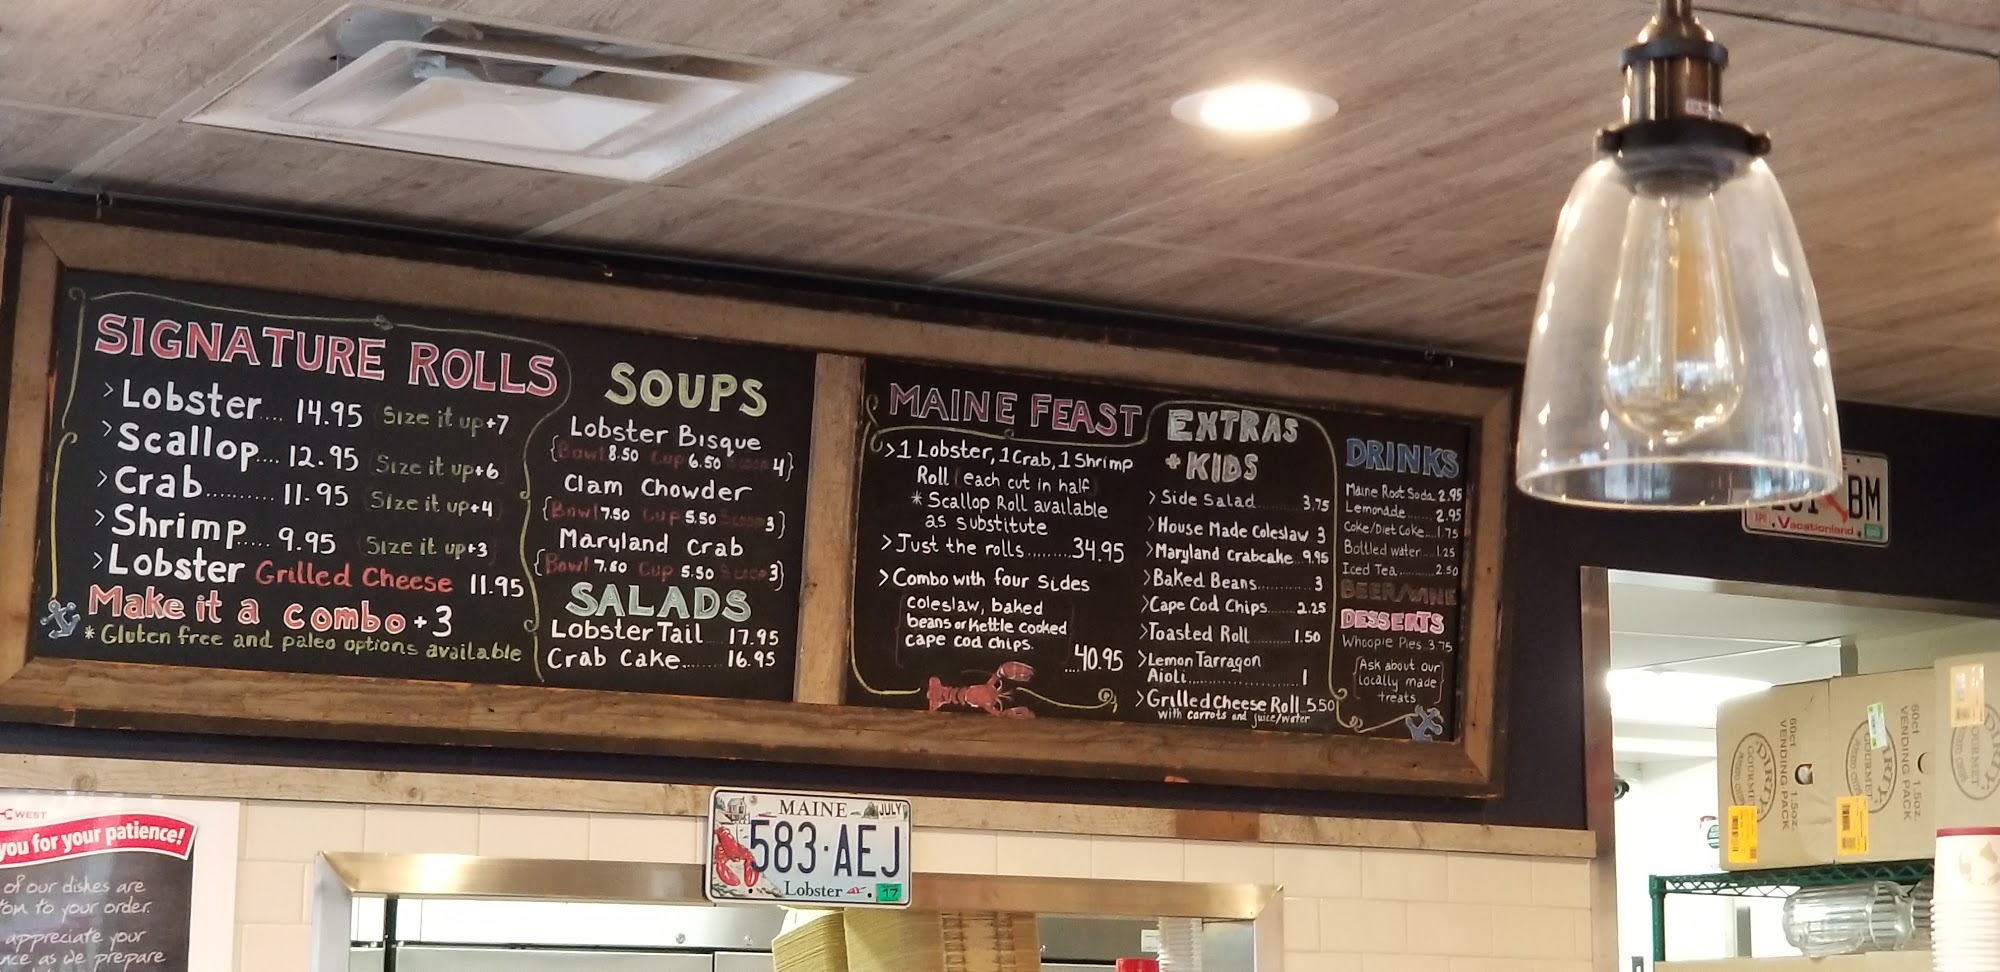 SIGNATURE ROLLS
>Lobster.... 14.95 (Size it up+7
>Scallop.... 12.95 (Size it up+6
>Crab.......... 11.95 (Size it up+4
>Shrimp..... 9.95 (Size it up+3
>Lobster Grilled Cheese 11.95
Make it a combo +3
* Gluten free and paleo options available
SOUPS
Lobster Bisque
{Bowl 8.50 Cup 6.50 4}
Clam Chowder
{Bowl 7.50 Cup 5.50 3}
Maryland Crab
{Bowl 7.60 Cup 5.50 3}
SALADS
Lobster Tail 17.95
Crab Cake....... 16.95
MAINE FEAST
>1 Lobster, 1 Crab, 1 Shrimp
Roll (each cut in half)
* Scallop Roll available
as substitute
>Just the rolls.........34.95
>Combo with four Sides
coleslaw, baked
beans or Kettle cooked
cape cod chips.
....40.95
EXTRAS
+ KIDS
>Side Salad........3.75
>House Made Coleslaw 3
>Maryland Crabcake...9.95
>Baked Beans............3
>Cape Cod Chips......2.25
>Toasted Roll..........1.50
>Lemon Tarragon
Aioli........................1
>Grilled Cheese Roll 5.50
with carrots and juice/water
DRINKS
Maine Root Soda 2.95
Lemonade......2.95
Coke/Diet Coke...1.75
Bottled water...1.25
Iced Tea.........2.50
BEER/WINE
DESSERTS
Whoopie Pies..3.75
{Ask about our
locally made
treats}
BM
Vacationland
MAINE JULY
583·AEJ
Lobster 17
WEST
you for your patience!
of our dishes are
to your order.
appreciate your
as we prepare
DIRTY
GOURMET
60ct 1.5oz.
VENDING PACK
GOURMET
60ct 1.5oz.
VENDING PACK